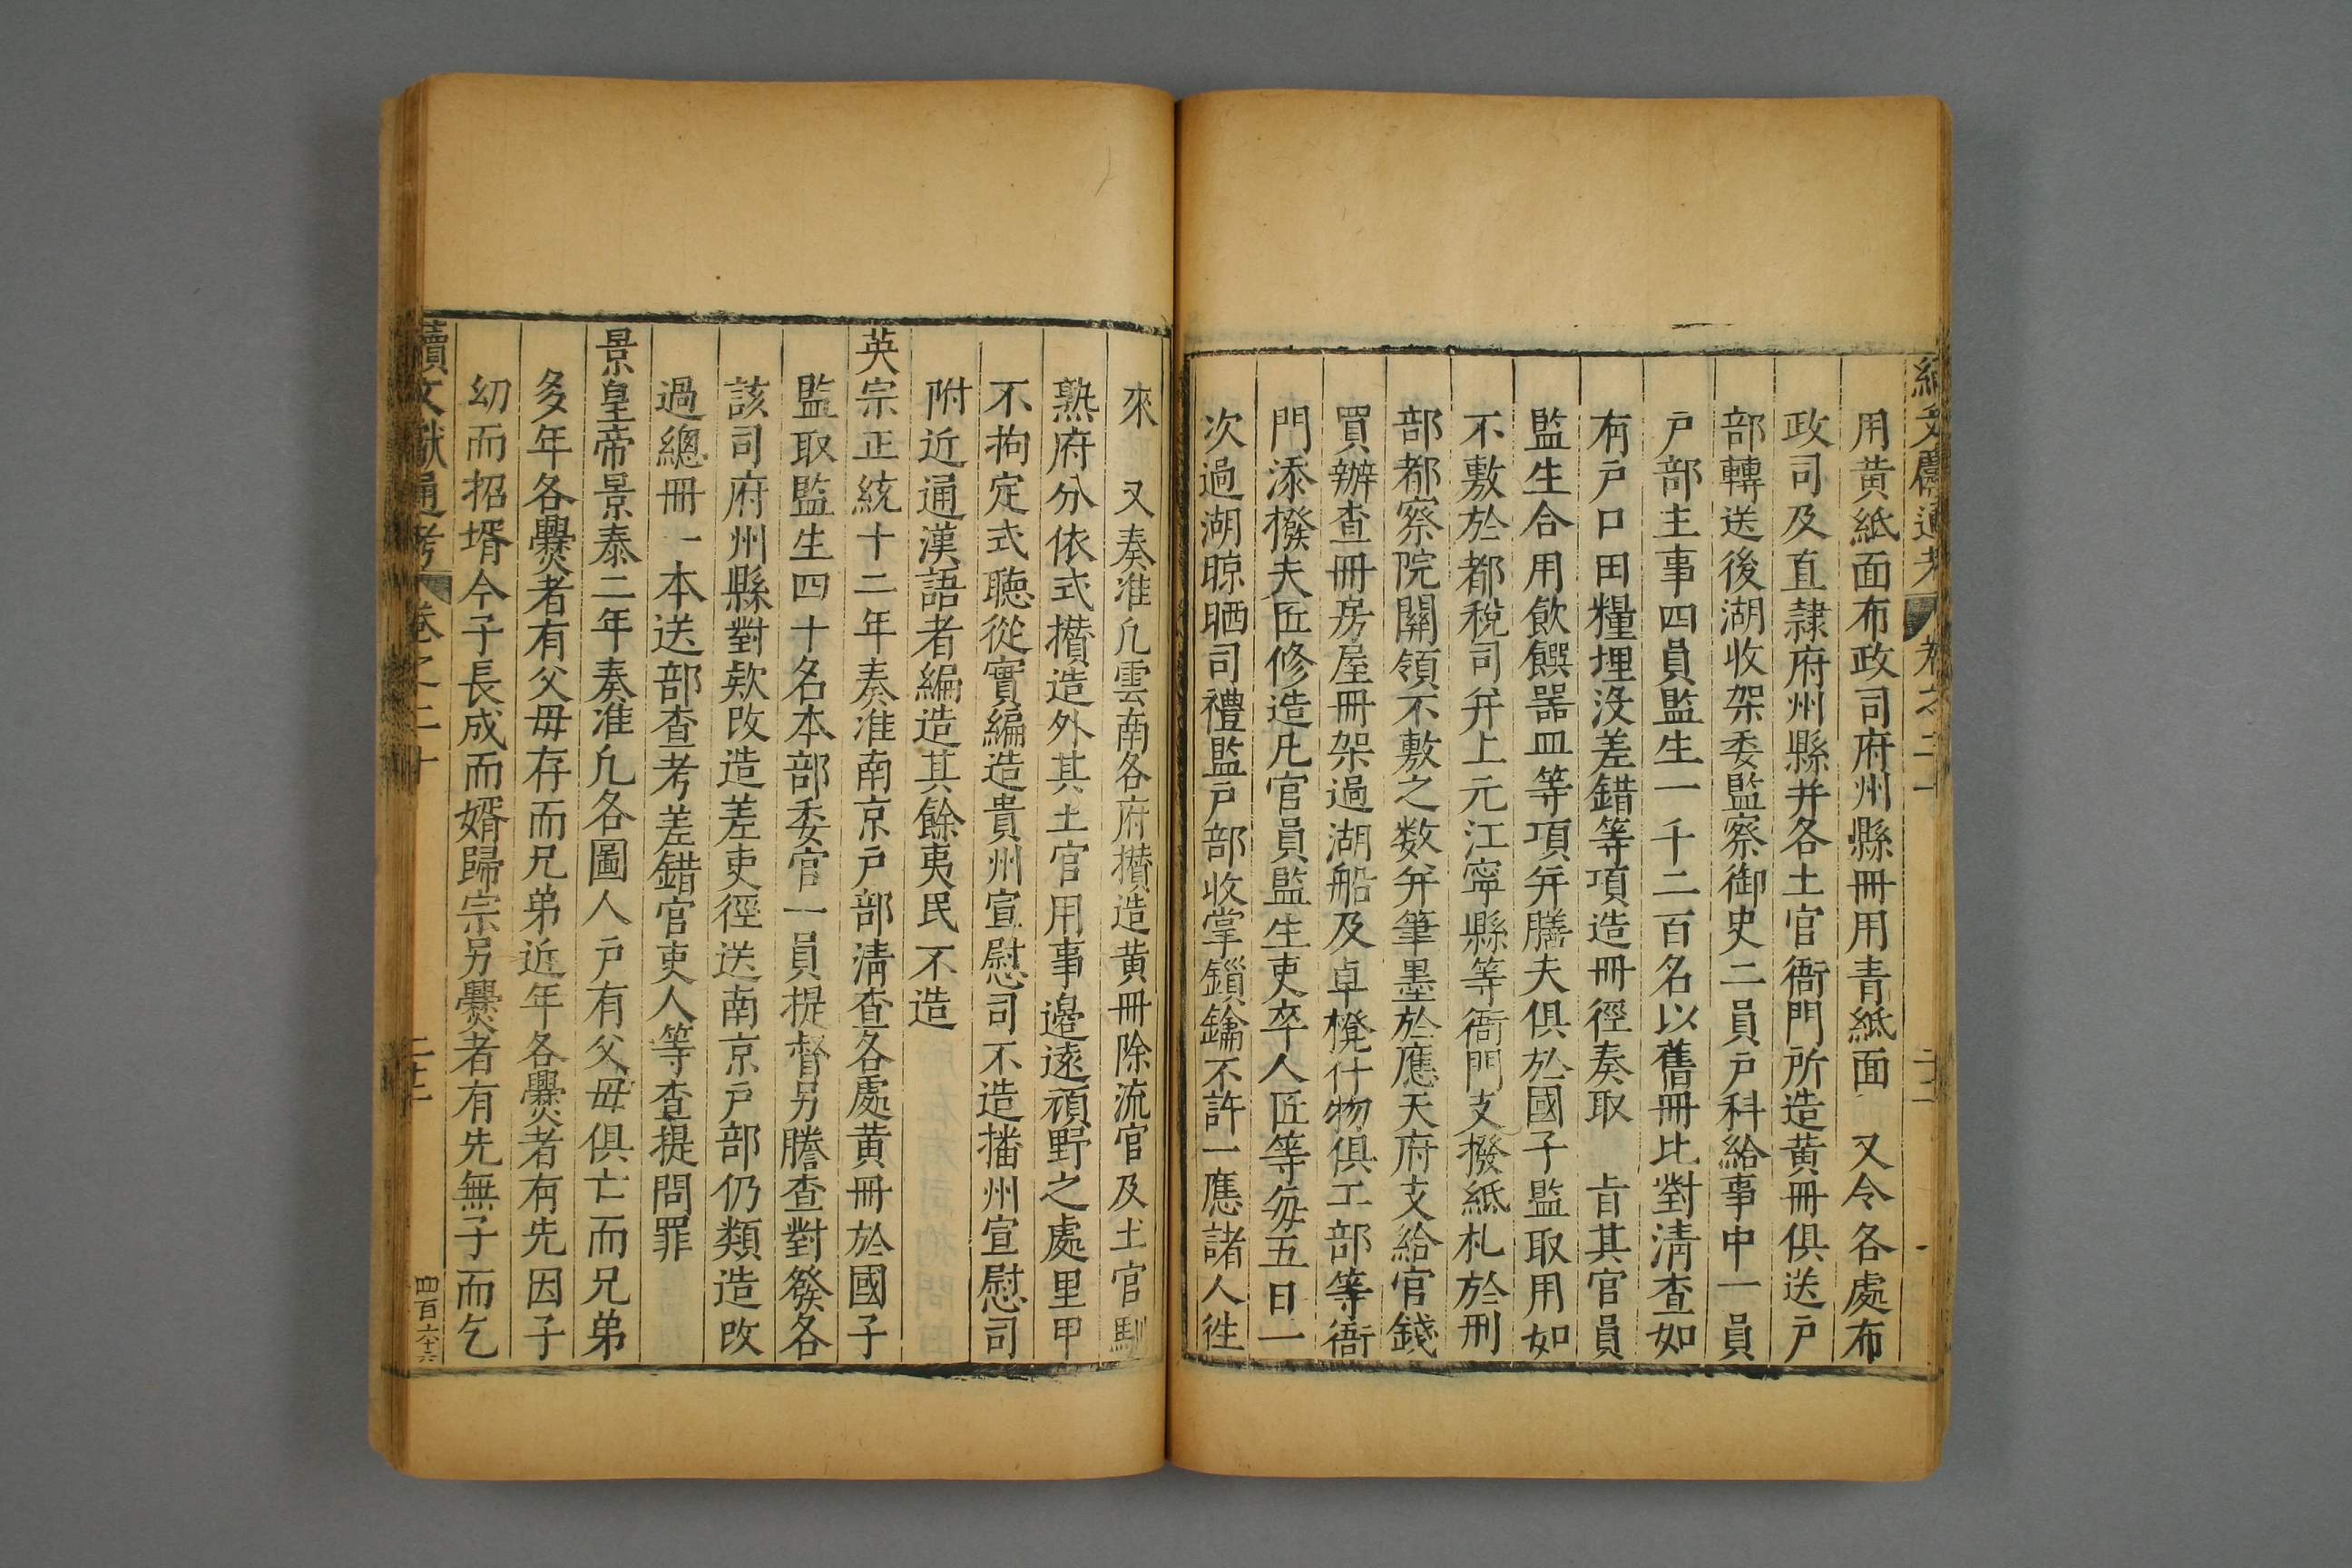 續文獻通考 卷之二十
用黃紙面布政司府州縣冊用青紙面 又令各處布
政司及直隷府州縣并各土官衙門所造黃冊俱送戶
部轉送後湖收架委監察御史二員戶科給事中一員
戶部主事四員監生一千二百名以舊冊比對清查如
有戶口田糧埋沒差錯等項造冊徑奏取 旨其官員
監生合用飲饌器皿等項并膳夫俱於國子監取用如
不敷於都稅司并上元江寧縣等衙門支撥紙札於刑
部都察院關領不敷之数并筆墨於應天府支給官錢
買辦查冊房屋冊架過湖船及卓櫈什物俱工部等衙
門添撥夫匠修造凡官員監生吏卒人匠等每五日一
次過湖晾晒司禮監戶部收掌鎖鑰不許一應諸人徃
來 又奏准凡雲南各府攅造黃冊除流官及土官馴
熟府分依式攅造外其土官用事邊遠頑野之處里甲
不拘定式聽從實編造貴州宣慰司不造播州宣慰司
附近通漢語者編造其餘夷民不造
英宗正統十二年奏准南京戶部清查各處黃冊於國子
監取監生四十名本部委官一員提督另謄查對發各
該司府州縣對欵改造差吏徑送南京戶部仍類造改
過總冊一本送部查考差錯官吏人等查提問罪
景皇帝景泰二年奏准凡各圖人戶有父母俱亡而兄弟
多年各爨者有父母存而兄弟近年各爨者有先因子
幼而招壻今子長成而婿歸宗另爨者有先無子而乞
續文獻通考 卷之二十 二十二 四百六十六